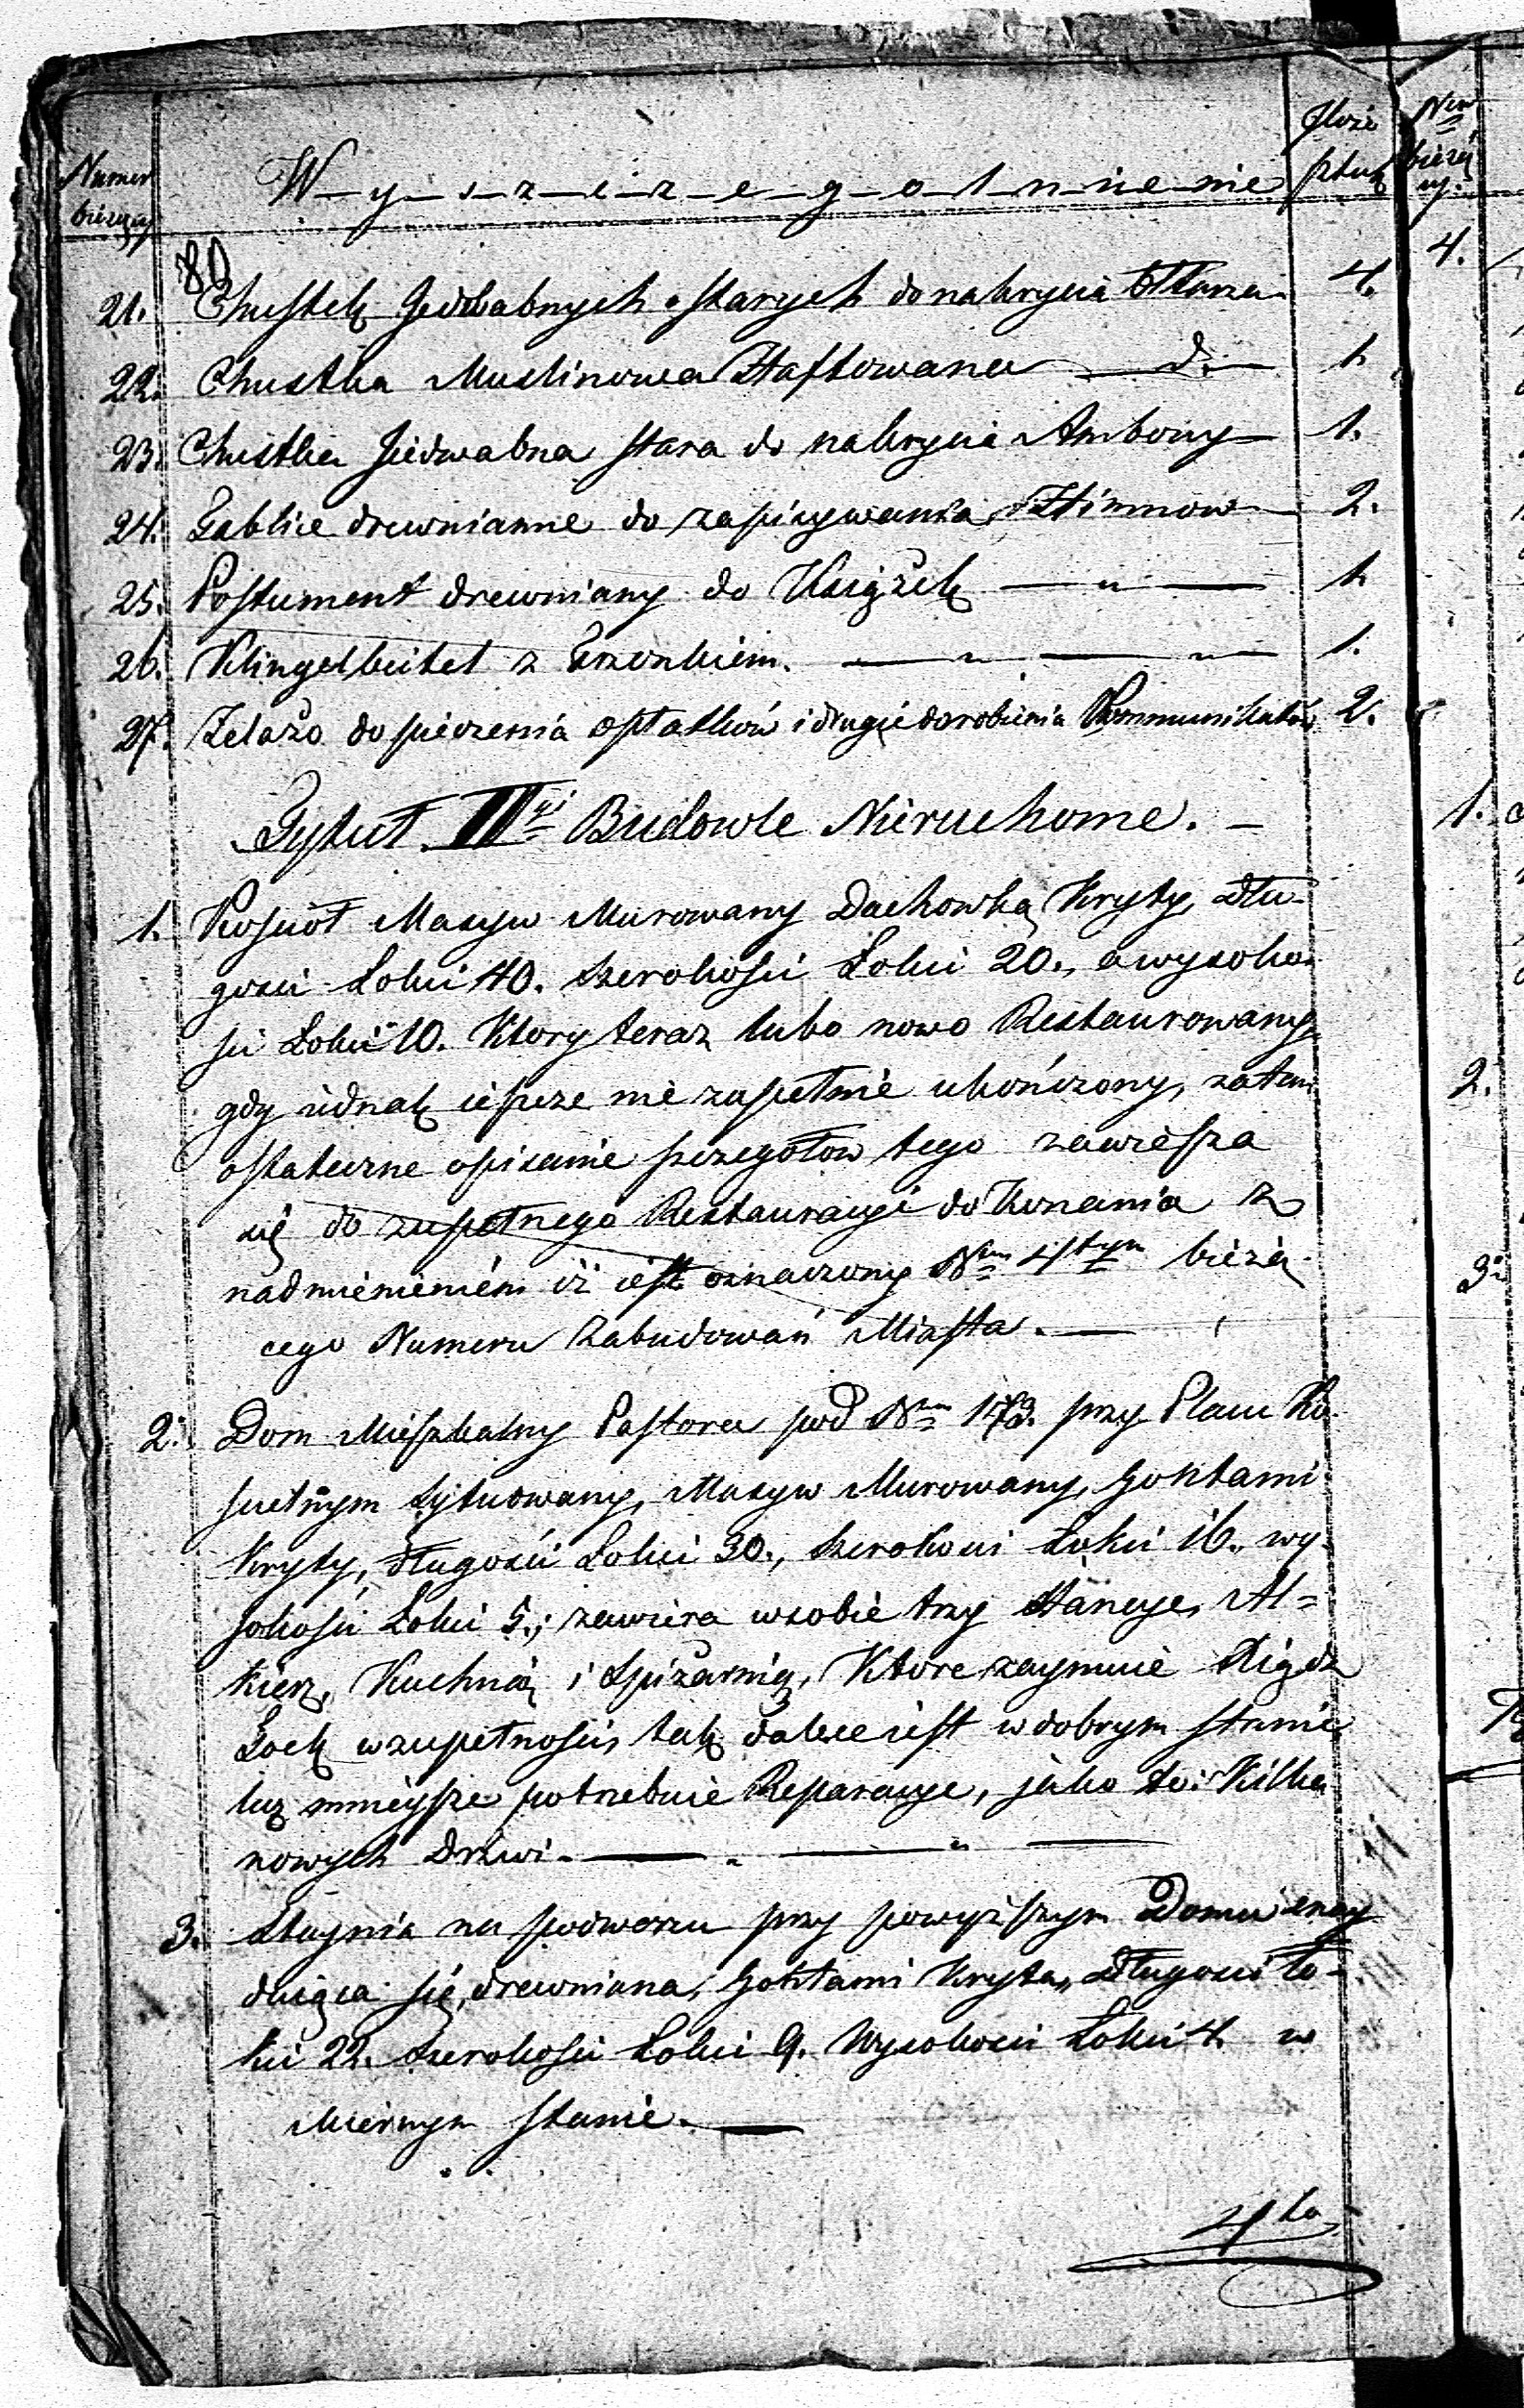 Numer bieżący
Wyszczegolnienie
Ilość sztuk
80
21. Chustek Jedwabnych starych do nakrycia Ołtarza 4.
22. Chustka Muslinowa Haftowana — d. — 1.
23. Chustka Jedwabna stara do nakrycia Ambony — 1.
24. Tablice drewnianne do zapisywania Himnow — 2.
25. Postument drewniany do Książek — " — 1.
26. Klingelbeitel z Trzonkiem. — " — " — 1.
27. Żelazo do pieczenia opłatków i drugie do robienia Kommunikatów 2.
Tytuł IIgi Budowle Nieruchome. —
1. Kosciół Masyw Murowany Dachowką Kryty, dłu-
gosci Łokci 40. szerokosci Łokci 20., a wysoko-
sci Łokci 10. Ktory teraz lubo nowo Restaurowany
gdy iednak ieszcze nie zupełnie ukończony, zatem
ostateczne opisanie szczegołow tego zawiesza
się do zupełnego Restauracyi dokonania z
nadmienieniem iż iest oznaczony Nrm 4tym bieżą-
cego Numeru Zabudowań Miasta. —
2. Dom Mieszkalny Pastora pod Nrm 173. przy Placu Ko-
scielnym Sytuowany, Masyw Murowany, Gontami
Kryty, długości Łokci 30., szerokosci Łokci 16., wy-
sokosci Łokci 5.; zawiera w sobie trzy Stancye, Al=
kierz, Kuchnią i Spiżarnią, Ktore zaymuie Xiądz
Lock w zupełnosci, tak dalece iest w dobrym stanie
lecz mnieysze potrzebuie Reparacye, jako to: Kilka
nowych Drzwi. — " — " —
3. Staynia na podworzu przy powyższym Domu znay-
duiąca się, drewniana, Gontami Kryta, długosci Ło-
kci 22. szerokosci Łokci 9. Wysokosci Łokci 4. w
Miernym stanie. —
4to
Nrm bieżący.
4.
1.
2.
3.